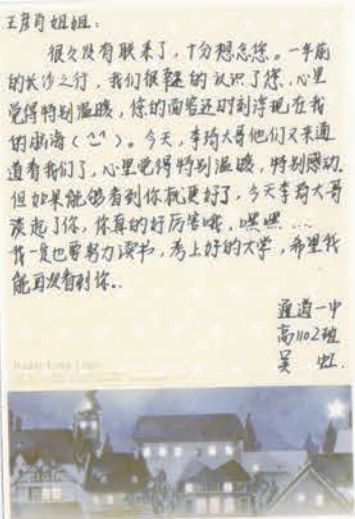 王彦自姐姐：
很久没有联系了，十分想念您。一年前
的长沙之行，我们很幸运的认识了您，心里
觉得特别温暖，你的面容还时刻浮现在我
的脑海（^_^）。今天，李琦大哥他们又来通
道看我们了，心里觉得特别温暖，特别感动.
但如果能够看到你就更好了，今天李琦大哥
谈起了你，你真的好厉害哦，嘿嘿…
我一定也要努力读书，考上好的大学，希望我
能再次看到你..
通道一中
高1102班
吴 虹.